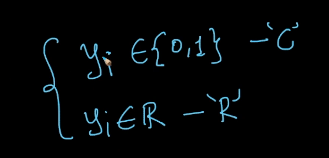 yᵢ ∈ {0,1} – 'C'
yᵢ ∈ ℝ – 'R'